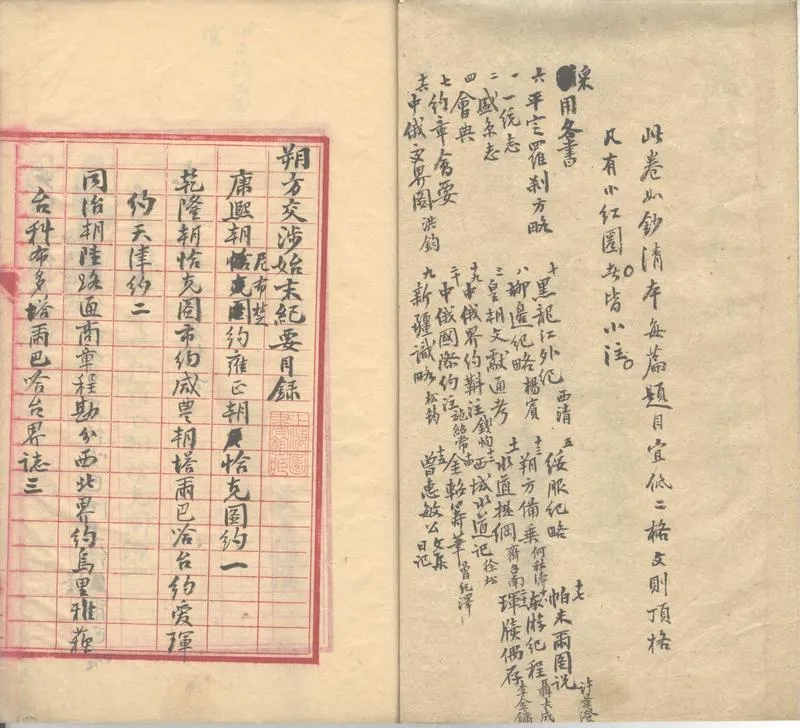 此卷如鈔清本每篇題目宜低二格文則頂格
凡有小紅圈者皆小注
采用各書
六 平定羅刹方略
一 一統志
二 盛京志
四 會典
七 約章會要
十六 中俄交界圖 洪鈞
十 黑龍江外紀 西清
八 柳邊紀略 楊賓
三 皇朝文獻通考
十九 中俄界約斠注 錢恂
二十 中俄國際約注 施紹常
九 新疆識略 松筠
五 綏服紀略
十三 朔方備乘 何秋濤
十一 水道提綱 齊召南
十二 西域水道記 徐松
金軺籌筆 曾紀澤
十五 曾惠敏公文集
日記
十七 帕米爾圖説 許景澄
東游紀程 聶士成
琿牘偶存 李金鏞
朔方交涉始末紀要目錄
康熙朝尼布楚約雍正朝恰克圖約一
乾隆朝恰克圖市約咸豐朝塔爾巴哈台約愛琿
約天津約二
同治朝陸路通商章程勘分西北界約烏里雅蘇
台科布多塔爾巴哈台界誌三